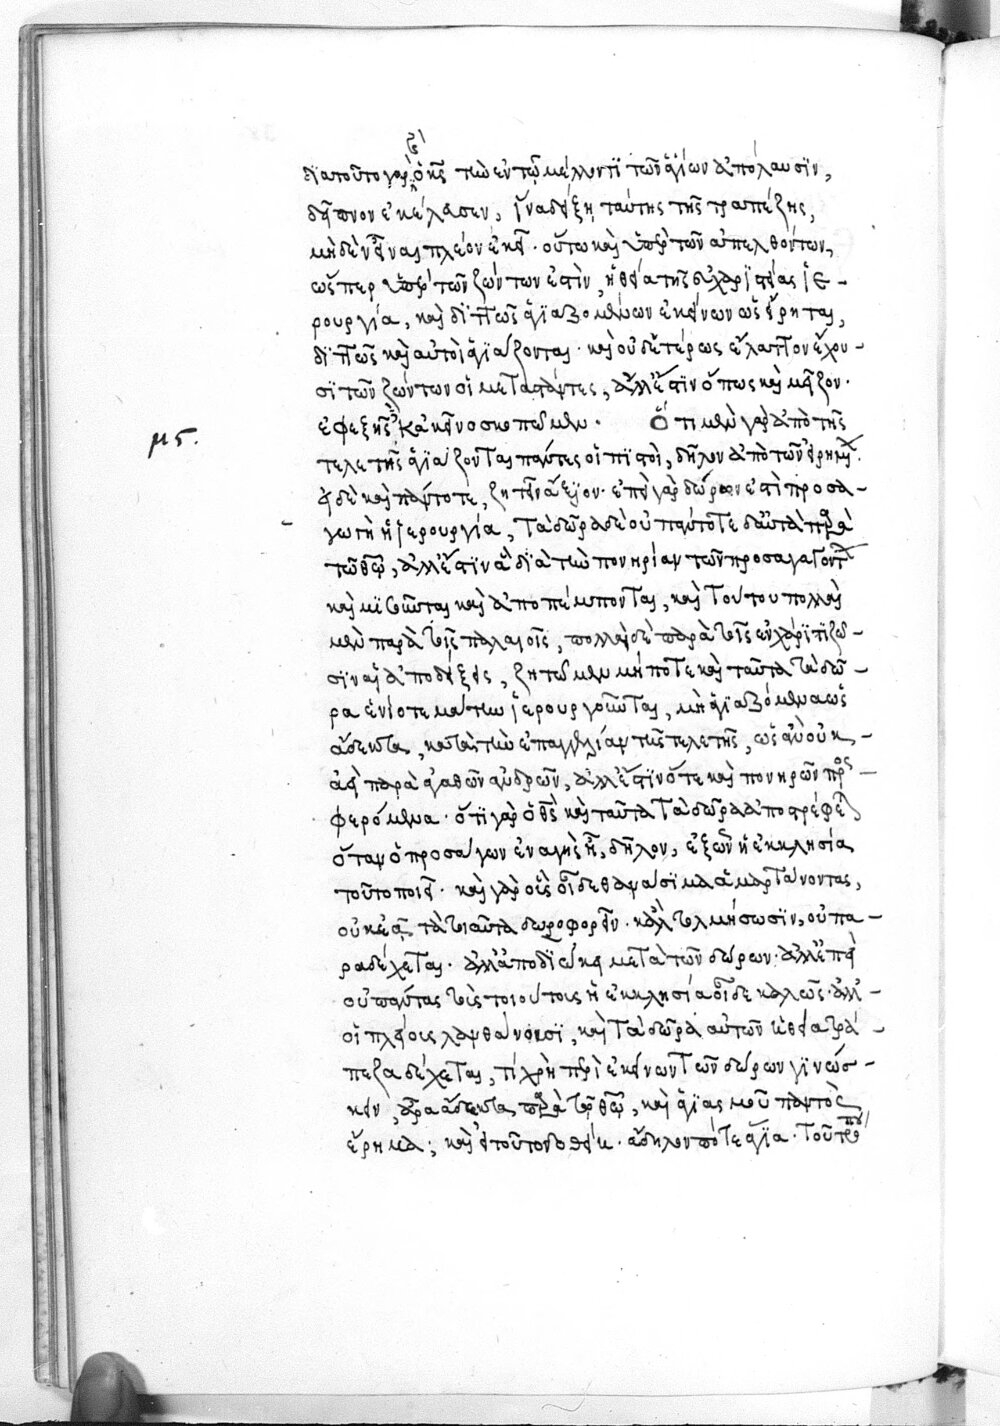 διατοῦτο γὰρ καὶ ὁ κς τὴν ἐν τῶ μέλλοντι τῶν ἁγίων ἀπόλαυσιν,
δεῖπνον ἐκάλεσεν, ἵνα δείξη ταύτης τῆς τραπέζης,
μηδὲν εἶναι πλέον ἐκεῖ · οὕτω καὶ ὑπὲρ τῶν ἀπελθόντων,
ὥσπερ ὑπὲρ τῶν ζώντων ἐστὶν, ἡ θεία τῆς εὐχαριστίας ἱε-
ρουργία, καὶ διττῶς ἁγιαζομένων ἐκείνων ὡς εἴρηται,
διττῶς καὶ αὐτοὶ ἁγιάζονται · καὶ οὐδετέρως ἔλαττον ἔχου-
σι τῶν ζώντων οἱ μεταστάντες, ἀλλ' ἔστιν ὅπως καὶ μεῖζον ·
ἐφεξῆς κἀκεῖνο σκοπῶμεν · Ὅτι μὲν γὰρ ἀπὸ τῆς
μϛ.
τελετῆς ἁγιάζονται πάντες οἱ πιστοὶ, δῆλον ἀπὸ τῶν εἰρημένων.
εἰ δὲ καὶ πάντοτε, ζητεῖν ἄξιον · ἐπεὶ γὰρ δώρων ἐστὶ προσα-
γωγὴ ἡ ἱερουργία, τὰ δῶρα δὲ οὐ πάντοτε δεκτὰ παρὰ
τῶ θεῶ, ἀλλ' ἔστιν ἃ διὰ τὴν πονηρίαν τῶν προσαγαγόντων
καὶ μισοῦνται καὶ ἀποπέμπονται, καὶ τούτου πολλαὶ
μὲν παρὰ τοῖς παλαιοῖς, πολλαὶ δὲ παρὰ τοῖς ἐν χάριτι ζῶ-
σιν αἱ ἀποδείξεις, ζητῶμεν μήποτε καὶ ταῦτα τὰ δῶ-
ρα ἐνίοτε μάτην ἱερουργοῦνται, μὴ ἁγιαζόμενα ὡς
ἄδεκτα, κατὰ τὴν ἐπαγγελίαν τῆς τελετῆς, ὡς ἂν οὐκ
ἀεὶ παρὰ ἀγαθῶν ἀνδρῶν, ἀλλ' ἔστιν ὅτε καὶ πονηρῶν προς-
φερόμενα · ὅτι γὰρ ὁ θς καὶ ταῦτα τὰ δῶρα ἀποστρέφεται
ὅταν ὁ προσάγων ἐναγὴς ἦ, δῆλον, ἐξ ὧν ἡ ἐκκλησία
τοῦτο ποιεῖ · καὶ γὰρ οὓς οἶδε θανάσιμα ἁμαρτάνοντας,
οὐκ ἐᾶ τὰ τοιαῦτα δωροφορεῖν · κἂν τολμήσωσιν, οὐ πα-
ραδέχεται · ἀλλ' ἀποδιώκει μετὰ τῶν δώρων · ἀλλ' ἐπεὶ
οὐ πάντας τοὺς τοιούτους ἡ ἐκκλησία οἶδε καλῶς · ἀλλ'
οἱ πλείους λανθάνουσι, καὶ τὰ δῶρα αὐτῶν ἡ θεία τρά-
πεζα δέχεται, τί χρὴ περὶ ἐκείνων τῶν δώρων γινώσ-
κειν, ἆρα ἄδεκτα παρὰ τῶ θεῶ, καὶ ἁγιασμοῦ παντὸς
ἔρημα; καὶ εἰ τοῦτο δοθείη · ἄδηλον πότε ἅγια · τοῦ τρόπου